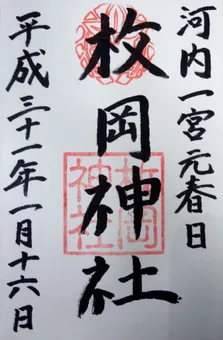 河内一宮元春日
枚岡神社
枚岡
神社
平成三十一年一月十六日